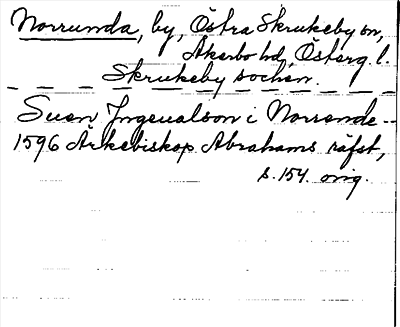 Norrunda, by, Östra Skrukeby sn,
Åkerbo hd, Österg. l.
Skrukeby socken.
Suen Jngeualson i Norrende --
1596 Ärkebiskop Abrahams räfst,
s. 154. orig.